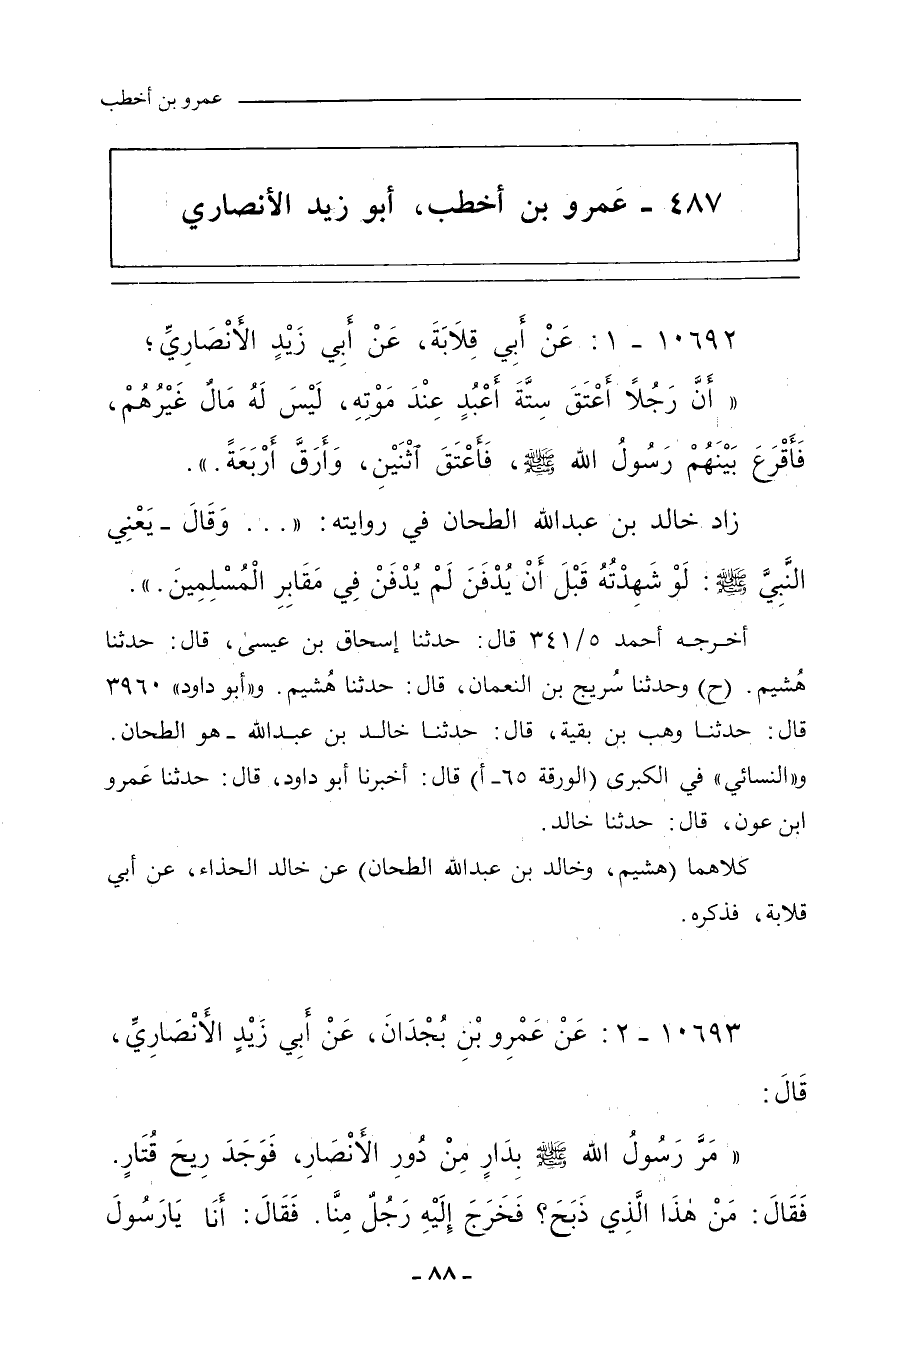 عمرو بن أخطب
٤٨٧ ـ عَمرو بن أخطب، أبو زيد الأنصاري
١٠٦٩٢ ـ ١: عَنْ أَبِي قِلَابَةَ، عَنْ أَبِي زَيْدٍ الأَنْصَارِيِّ؛
« أَنَّ رَجُلًا أَعْتَقَ سِتَّةَ أَعْبُدٍ عِنْدَ مَوْتِهِ، لَيْسَ لَهُ مَالٌ غَيْرُهُمْ،
فَأَقْرَعَ بَيْنَهُمْ رَسُولُ الله ﷺ، فَأَعْتَقَ ٱثْنَيْنِ، وَأَرَقَّ أَرْبَعَةً.».
زاد خالد بن عبدالله الطحان في روايته: «... وَقَالَ ـ يَعْنِي
النَّبِيَّ ﷺ: لَوْ شَهِدْتُهُ قَبْلَ أَنْ يُدْفَنَ لَمْ يُدْفَنْ فِي مَقَابِرِ الْمُسْلِمِينَ.».
أخرجه أحمد ٣٤١/٥ قال: حدثنا إسحاق بن عيسىٰ، قال: حدثنا
هُشيم. (ح) وحدثنا سُريج بن النعمان، قال: حدثنا هُشيم. و«أبو داود» ٣٩٦٠
قال: حدثنا وهب بن بقية، قال: حدثنا خالد بن عبدالله ـ هو الطحان.
و«النسائي» في الكبرى (الورقة ٦٥ـ أ) قال: أخبرنا أبو داود، قال: حدثنا عَمرو
ابن عون، قال: حدثنا خالد.
كلاهما (هشيم، وخالد بن عبدالله الطحان) عن خالد الحذاء، عن أبي
قلابة، فذكره.
١٠٦٩٣ ـ ٢: عَنْ عَمْرِو بْنِ بُجْدَانَ، عَنْ أَبِي زَيْدٍ الأَنْصَارِيِّ،
قَالَ:
« مَرَّ رَسُولُ الله ﷺ بِدَارٍ مِنْ دُورِ الأَنْصَارِ، فَوَجَدَ رِيحَ قُتَارٍ.
فَقَالَ: مَنْ هٰذَا الَّذِي ذَبَحَ؟ فَخَرَجَ إِلَيْهِ رَجُلٌ مِنَّا. فَقَالَ: أَنَا يَارَسُولَ
ـ ٨٨ ـ